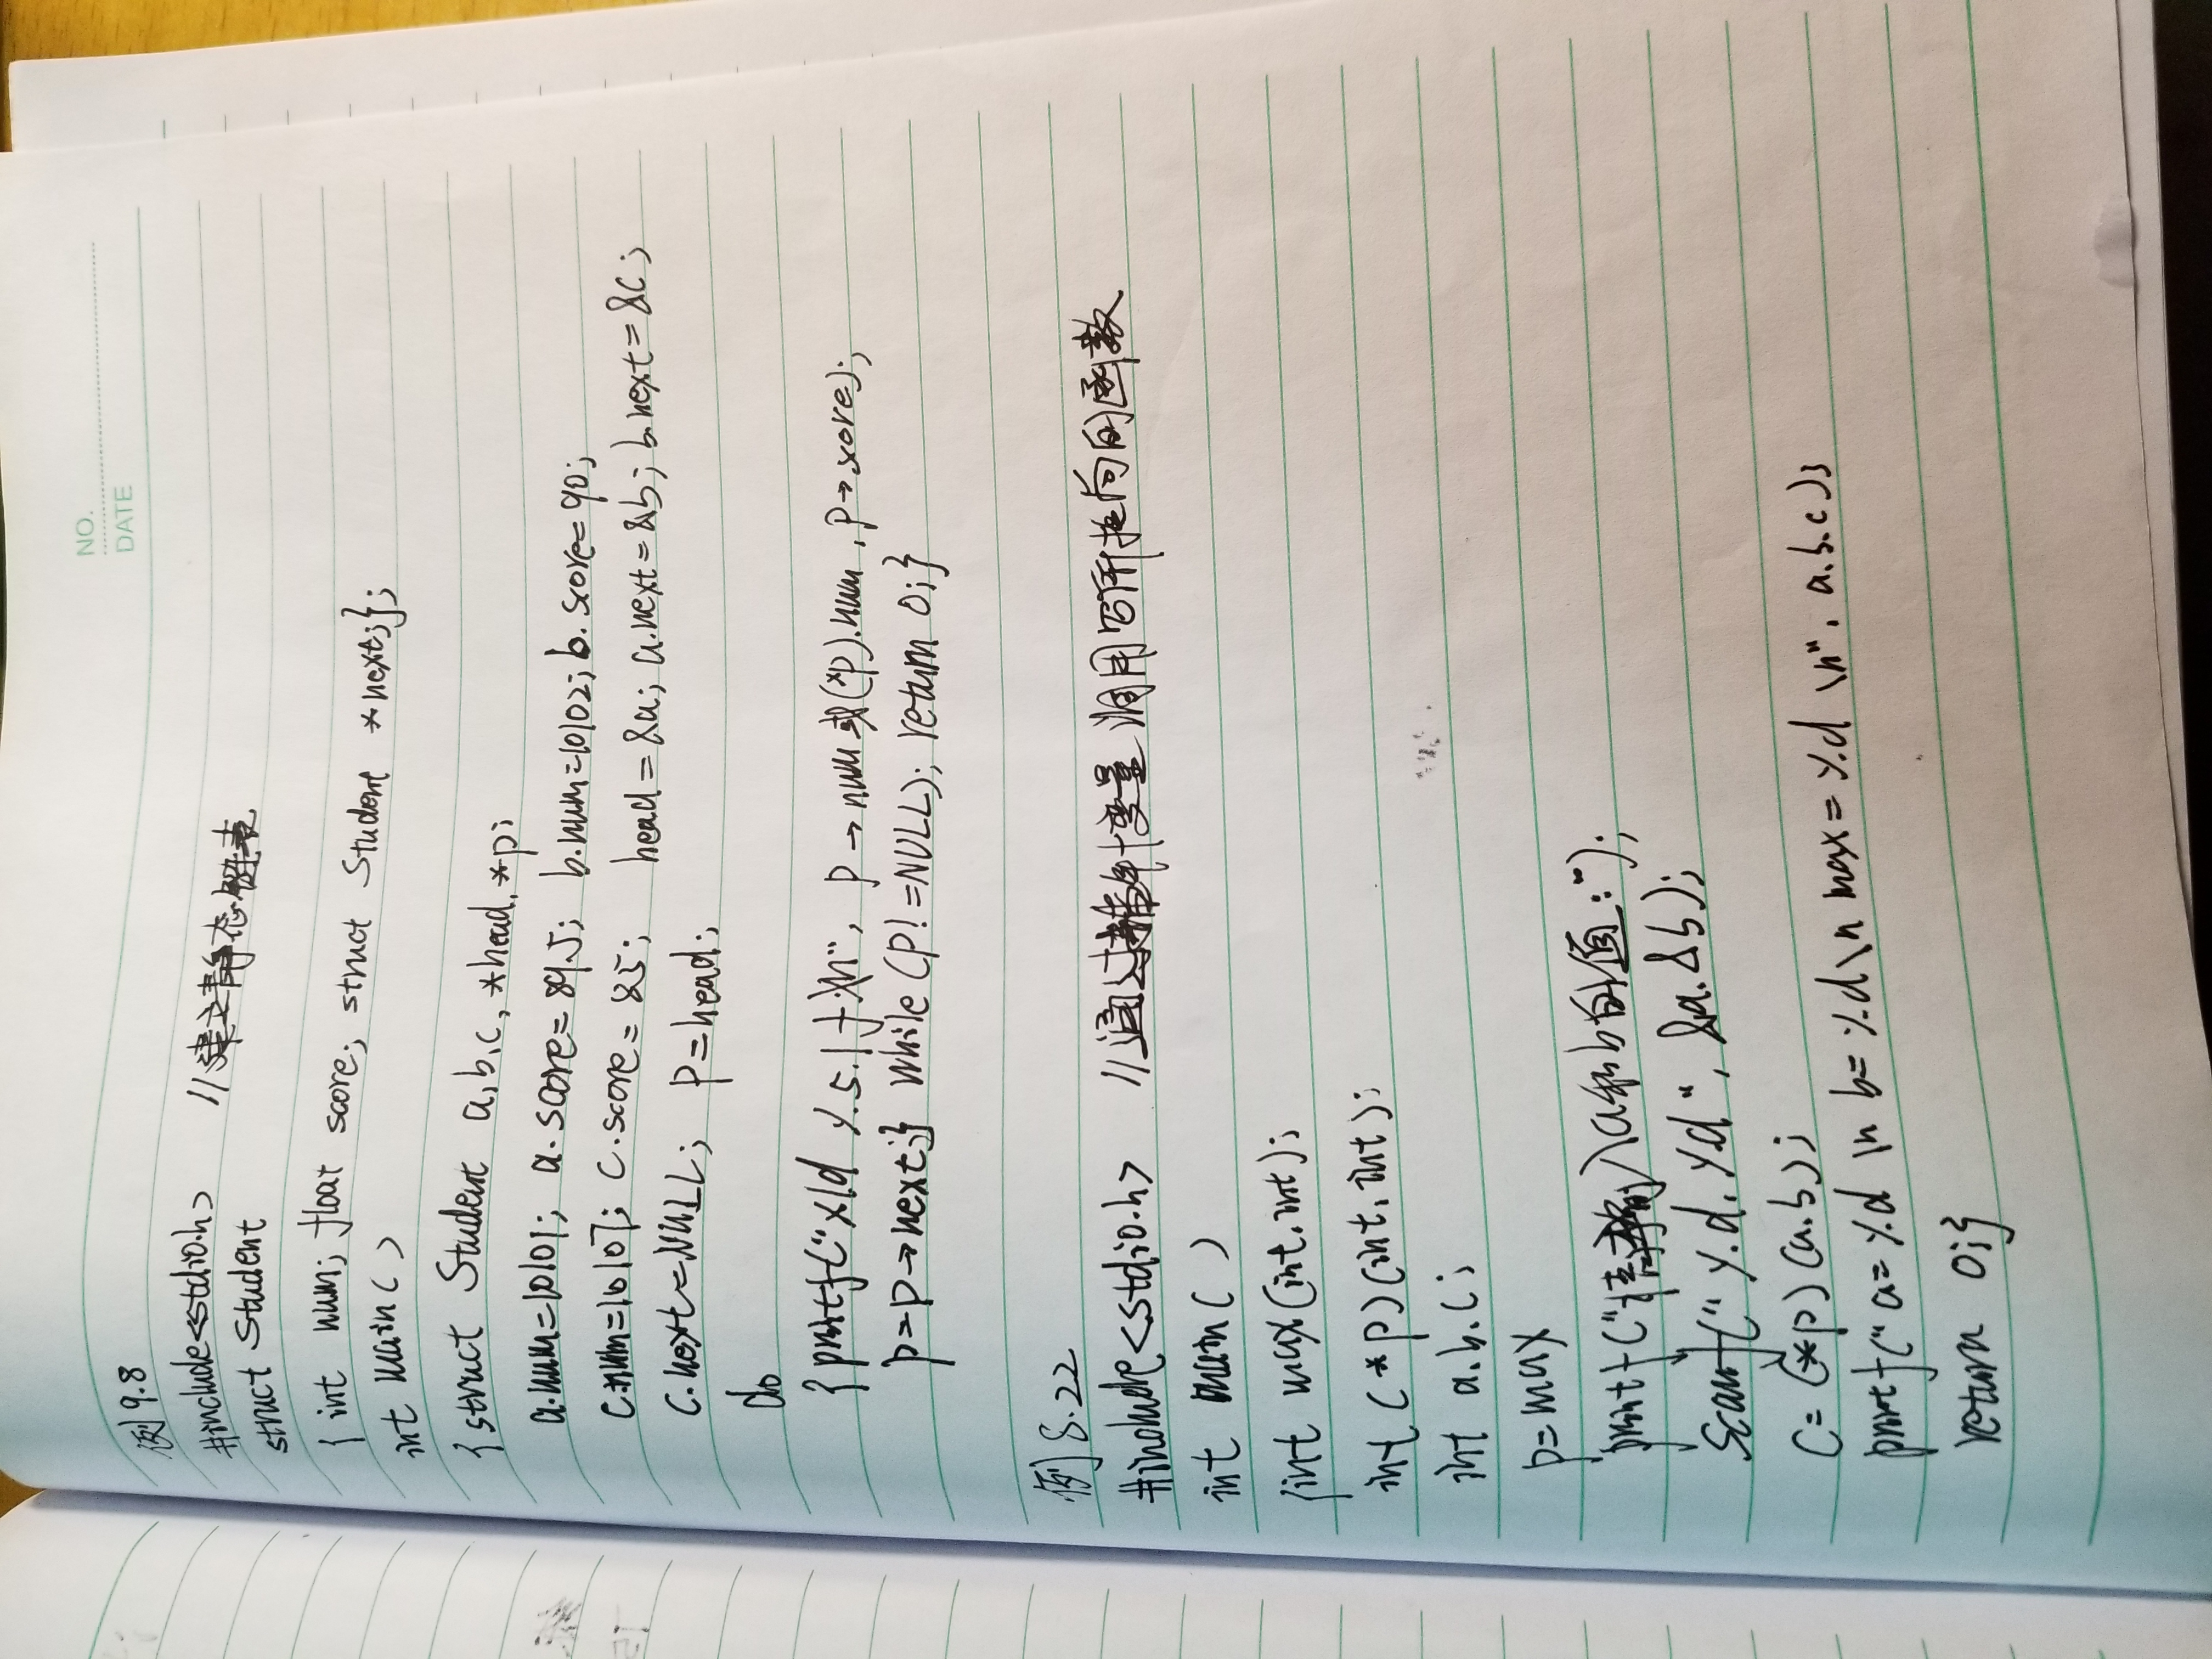 NO.
DATE
例9.8
#include<stdio.h> //建立静态链表
struct Student
{ int num; float score; struct Student *next;};
int main( )
{struct Student a,b,c,*head,*p;
a.num=10101; a.score=89.5; b.num=10102; b.score=90;
c.num=10107; c.score=85; head=&a; a.next=&b; b.next=&c;
c.next=NULL; p=head;
do
{printf("%ld %5.1f\n", p→num或(*p).num,p→score);
p=p→next;} while(p!=NULL); return 0;}
例8.22
#include<stdio.h> //通过指针变量调用它所指向的函数
int main( )
{int max(int,int);
int (*p)(int,int);
int a,b,c;
p=max
printf("请输入a和b的值:");
scanf("%d,%d", &a,&b);
c=(*p)(a,b);
printf("a=%d \n b=%d\n max=%d \n",a,b,c);
return 0;}